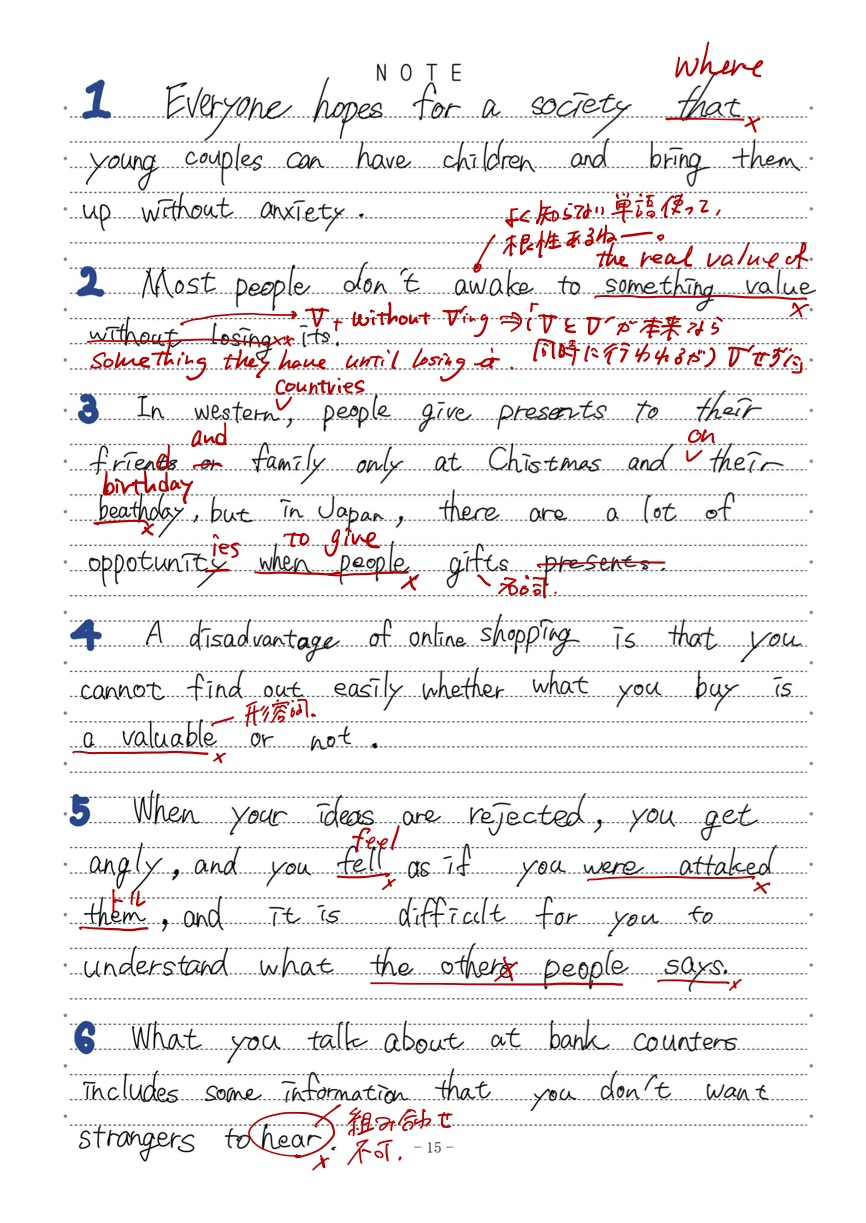 NOTE
where
1 Everyone hopes for a society that ×
young couples can have children and bring them
up without anxiety.
よく知らない単語使って、
根性あるねー。
the real value of
2 Most people don't awake to something value ×
without losing ×× its.
V + without Ving ⇒「VとV'が本来なら
something they have until losing it. 同時に行われるが」V'せずに
countries
3 In western, people give presents to their
and on
friends or family only at Chistmas and their
birthday
beathday ×, but in Japan, there are a lot of
ies to give
oppotunity when people × gifts presents.
名詞.
4 A disadvantage of online shopping is that you
cannot find out easily whether what you buy is
形容詞.
a valuable × or not.
5 When your ideas are rejected, you get
feel
angly, and you fell × as if you were attaked ×
トル
them, and it is difficult for you to
understand what the others people says. ×
6 What you talk about at bank counters
includes some information that you don't want
strangers to hear. × 組み合わせ
不可.
- 15 -